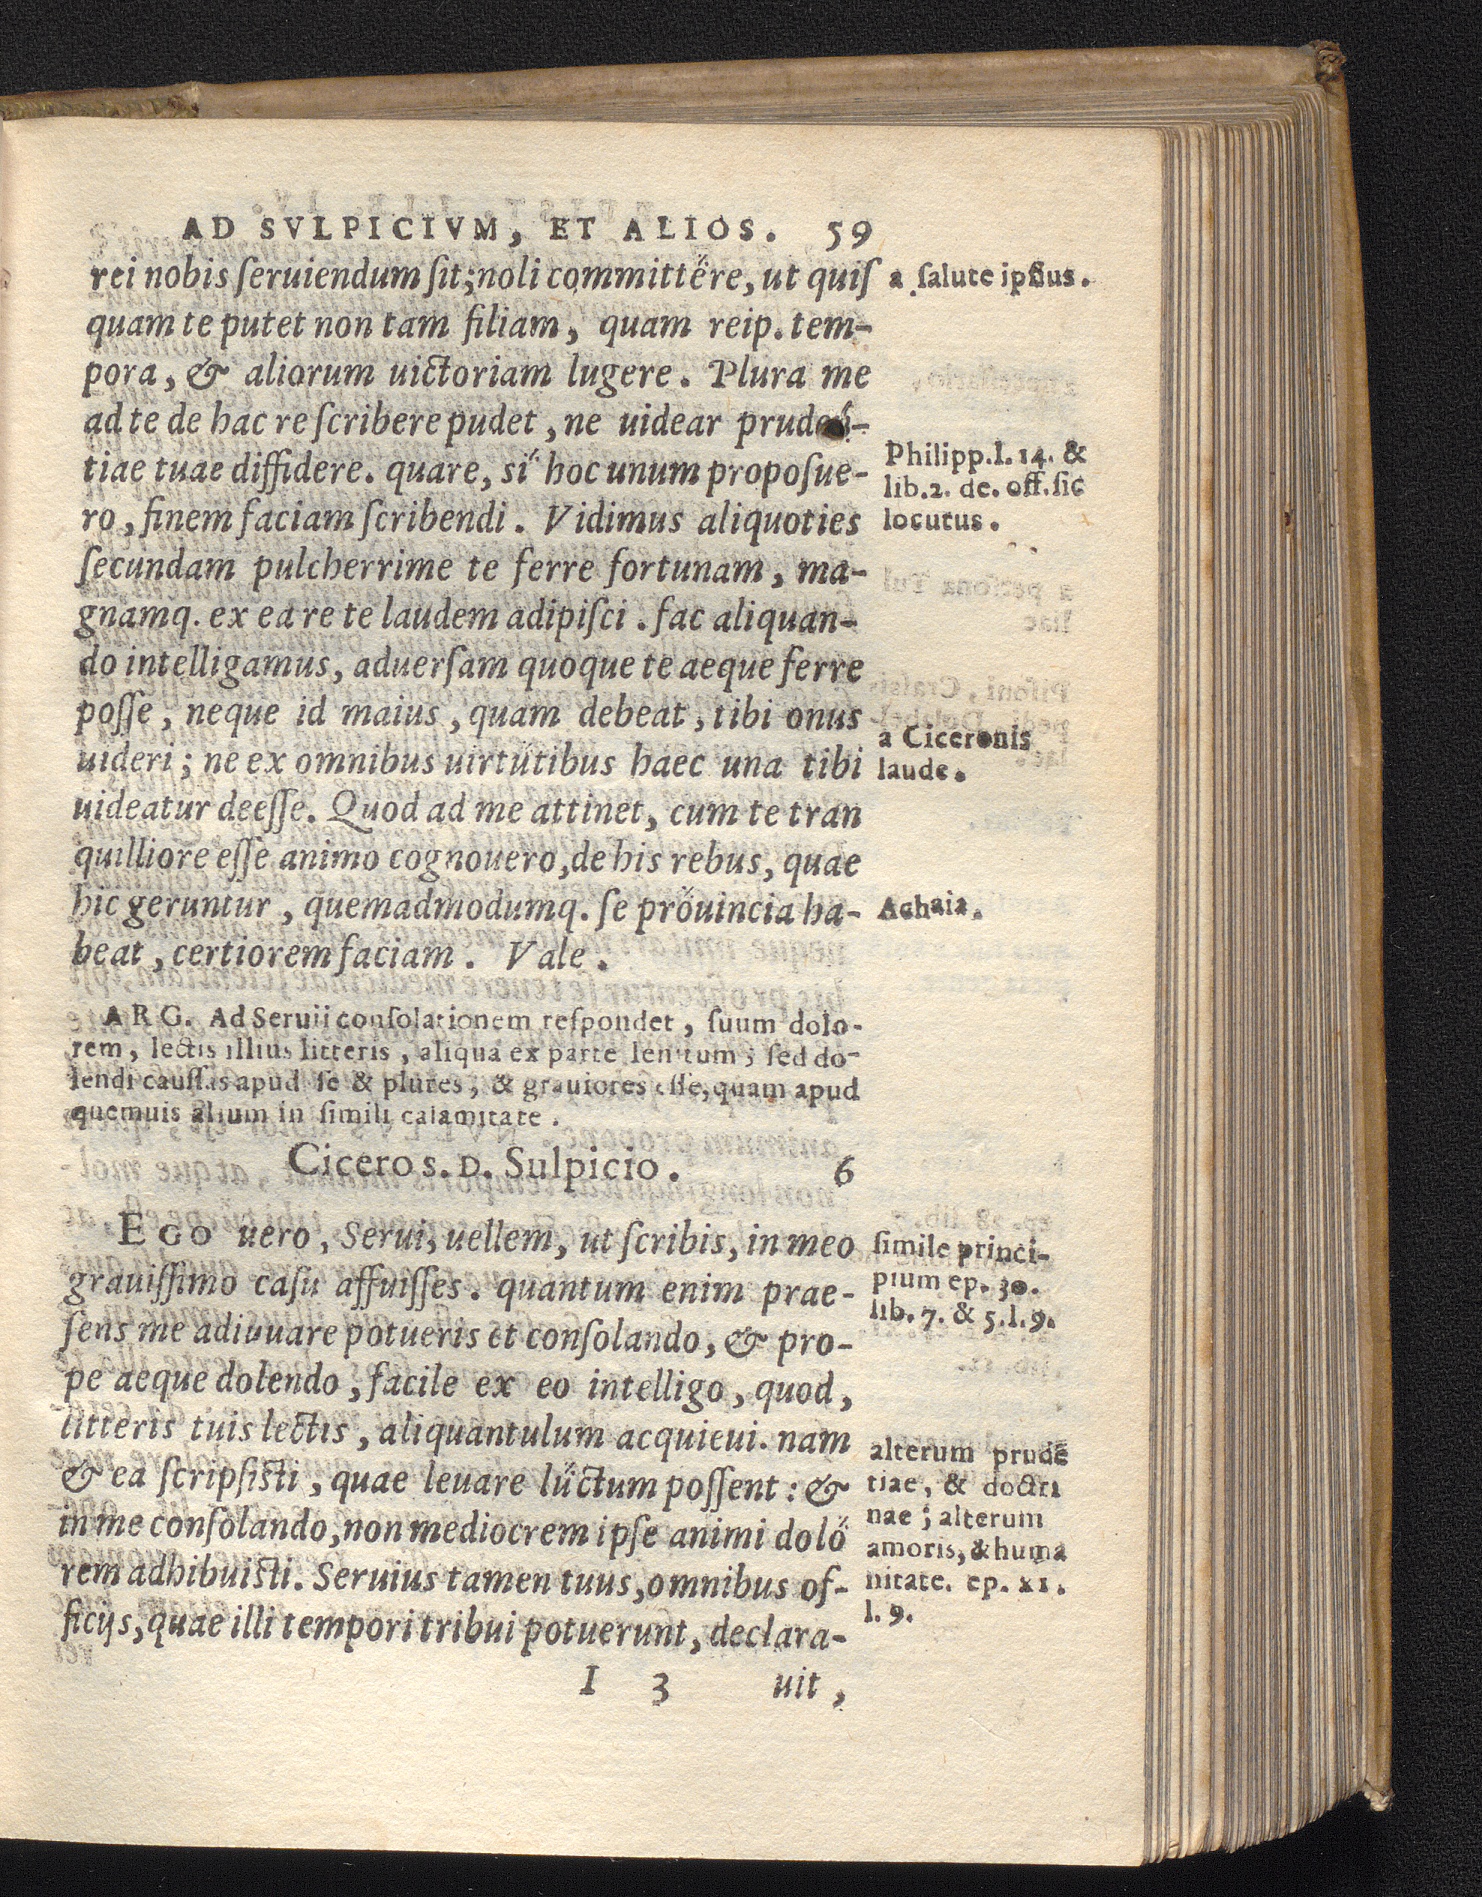 AD SVLPICIVM, ET ALIOS. 59
rei nobis ſeruiendum ſit; noli committere, ut quiſ
quam te putet non tam filiam, quam reip. tem-
pora, & aliorum uictoriam lugere. Plura me
ad te de hac re ſcribere pudet, ne uidear pruden-
tiae tuae diffidere. quare, si hoc unum propoſue-
ro, finem faciam ſcribendi. Vidimus aliquoties
ſecundam pulcherrime te ferre fortunam, ma-
gnamq. ex ea re te laudem adipiſci. fac aliquan-
do intelligamus, aduerſam quoque te aeque ferre
poſſe, neque id maius, quam debeat, tibi onus
uideri; ne ex omnibus uirtutibus haec una tibi
uideatur deeſſe. Quod ad me attinet, cum te tran
quilliore eſſe animo cognouero, de his rebus, quae
hic geruntur, quemadmodumq. ſe prouincia ha-
beat, certiorem faciam. Vale.
a ſalute ipſius.
Philipp. I. 14. &
lib. 2. de. off. ſic
locutus.
a Ciceronis
laude.
Achaia.
ARG. Ad Seruii conſolationem reſpondet, ſuum dolo-
rem, lectis illius litteris, aliqua ex parte lenitum; ſed do-
lendi cauſſas apud ſe & plures, & grauiores eſſe, quam apud
quemuis alium in ſimili calamitate.
Cicero s. D. Sulpicio. 6
EGO uero, Serui, uellem, ut ſcribis, in meo
grauiſſimo caſu affuiſſes. quantum enim prae-
ſens me adiuuare potueris et conſolando, & pro-
pe aeque dolendo, facile ex eo intelligo, quod,
litteris tuis lectis, aliquantulum acquieui. nam
& ea ſcripſiſti, quae leuare luctum poſſent: &
in me conſolando, non mediocrem ipſe animi dolo
rem adhibuiſti. Seruius tamen tuus, omnibus of-
ficijs, quae illi tempori tribui potuerunt, declara-
ſimile princi-
pium ep. 30.
lib. 7. & 5. l. 9.
alterum prudē
tiae, & doctri
nae; alterum
amoris, & huma
nitate. ep. XI.
l. 9.
I 3 uit,